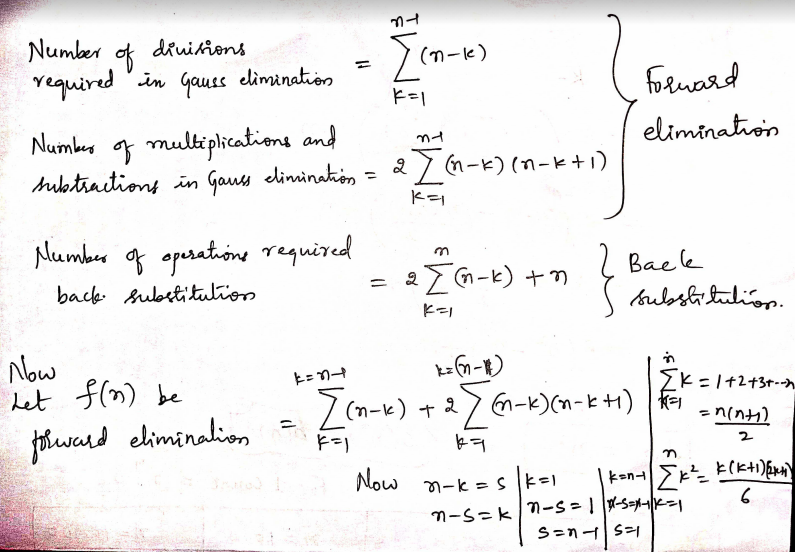 Number of divisions
required in Gauss elimination = \sum_{k=1}^{n-1} (n-k)
Number of multiplications and
subtractions in Gauss elimination = 2 \sum_{k=1}^{n-1} (n-k)(n-k+1)
} Forward
elimination
Number of operations required
back substitution = 2 \sum_{k=1}^{n} (n-k) + n
} Back
substitution.
Now
Let f(n) be
forward elimination = \sum_{k=1}^{k=n-1} (n-k) + 2 \sum_{k=1}^{k=(n-1)} (n-k)(n-k+1)
\sum_{k=1}^{n} k = 1+2+3+--n
= \frac{n(n+1)}{2}
\sum_{k=1}^{n} k^2 = \frac{k(k+1)(2k+1)}{6}
Now n-k = s | k=1 | k=n-1
n-s = k | n-s = 1 | n-s=n-1
s=n-1 | s=1